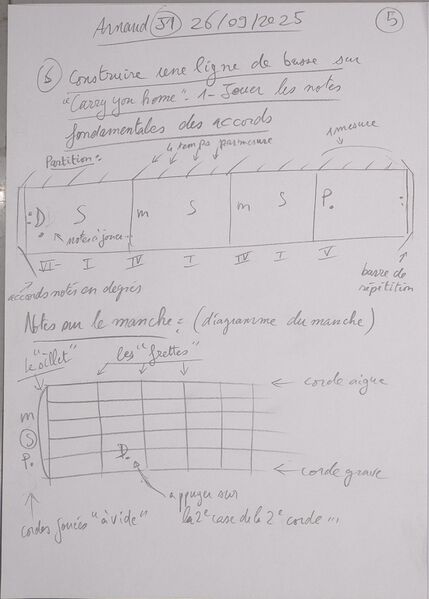 Arnaud S1 26/09/2025 5
6 Construire une ligne de basse sur
"Carry you home". 1- Jouer les notes
fondamentales des accords
Partition : 4 temps par mesure 1 mesure
D S m S m S P.
notes à jouer
VI- I IV I IV I V
accords notés en degrés barre de répétition
Notes sur le manche : (diagramme du manche)
le "sillet" les "frettes"
corde aigue
m
S
P. D.
corde grave
cordes jouées "à vide" appuyer sur
la 2e case de la 2e corde ...